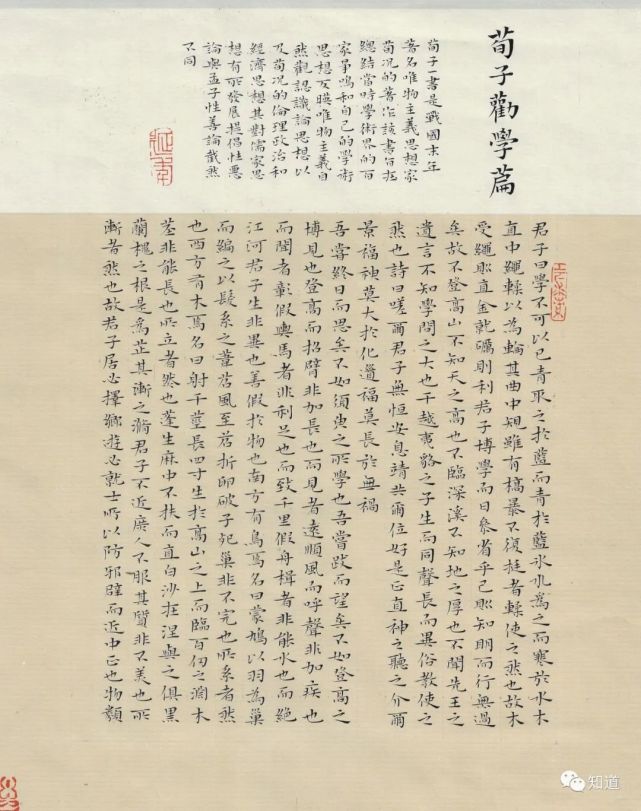 荀子勸學篇
荀子一書是戰國末年
著名唯物主義思想家
荀況的著作該書旨在
總結當時學術界的百
家爭鳴和自己的學術
思想反映唯物主義自
然觀認識論思想以
及荀況的倫理政治和
經濟思想其對儒家思
想有所發展提倡性惡
論與孟子性善論截然
不同
君子曰學不可以已青取之於藍而青於藍冰水為之而寒於水木
直中繩輮以為輪其曲中規雖有槁暴不復挺者輮使之然也故木
受繩則直金就礪則利君子博學而日參省乎己則知明而行無過
矣故不登高山不知天之高也不臨深溪不知地之厚也不聞先王之
遺言不知學問之大也干越夷貉之子生而同聲長而異俗教使之
然也詩曰嗟爾君子無恒安息靖共爾位好是正直神之聽之介爾
景福神莫大於化道福莫長於無禍
吾嘗終日而思矣不如須臾之所學也吾嘗跂而望矣不如登高之
博見也登高而招臂非加長也而見者遠順風而呼聲非加疾也
而聞者彰假輿馬者非利足也而致千里假舟楫者非能水也而絕
江河君子生非異也善假於物也南方有鳥焉名曰蒙鳩以羽為巢
而編之以髮系之葦苕風至苕折卵破子死巢非不完也所系者然
也西方有木焉名曰射干莖長四寸生於高山之上而臨百仞之淵木
莖非能長也所立者然也蓬生麻中不扶而直白沙在涅與之俱黑
蘭槐之根是為芷其漸之滫君子不近庶人不服其質非不美也所
漸者然也故君子居必擇鄉遊必就士所以防邪辟而近中正也物類
知道